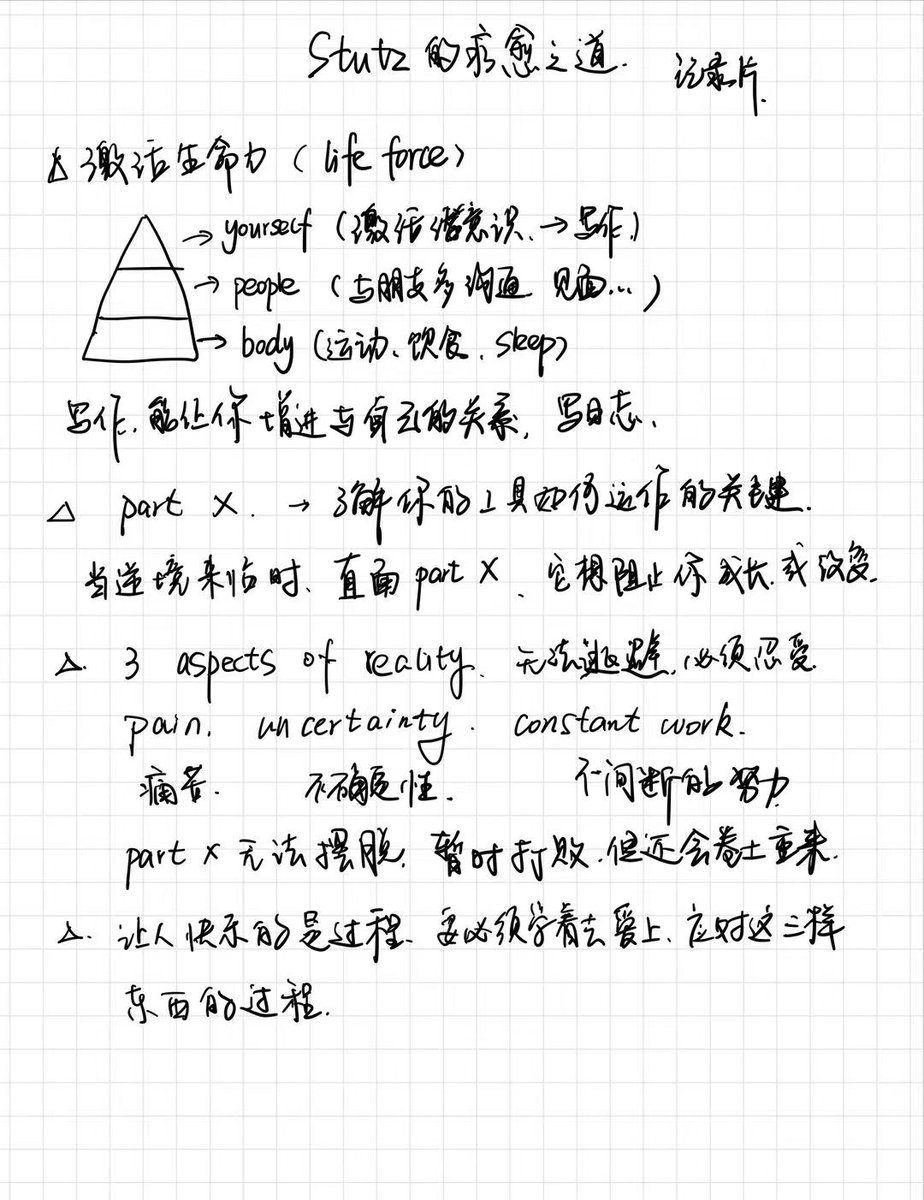 Stutz 的疗愈之道. 记录片.
△ 激活生命力（life force）
→ yourself（激活潜意识.→写作.）
→ people（与朋友多沟通 见面...）
→ body（运动、饮食. sleep）
写作.能让你增进与自己的关系, 写日志.
△ part X. → 了解你的工具如何运作的关键.
当逆境来临时、直面 part X、它想阻止你成长.或改变.
△. 3 aspects of reality. 无法逃避.必须忍受.
pain. uncertainty. constant work.
痛苦. 不确定性. 不间断的努力
part x 无法摆脱. 暂时打败.但还会卷土重来.
△. 让人快乐的是过程、要必须学着去爱上、应对这三样
东西的过程.